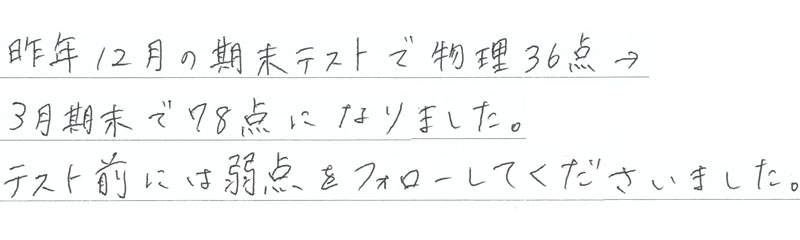 昨年12月の期末テストで物理36点→
3月期末で78点になりました。
テスト前には弱点をフォローしてくださいました。